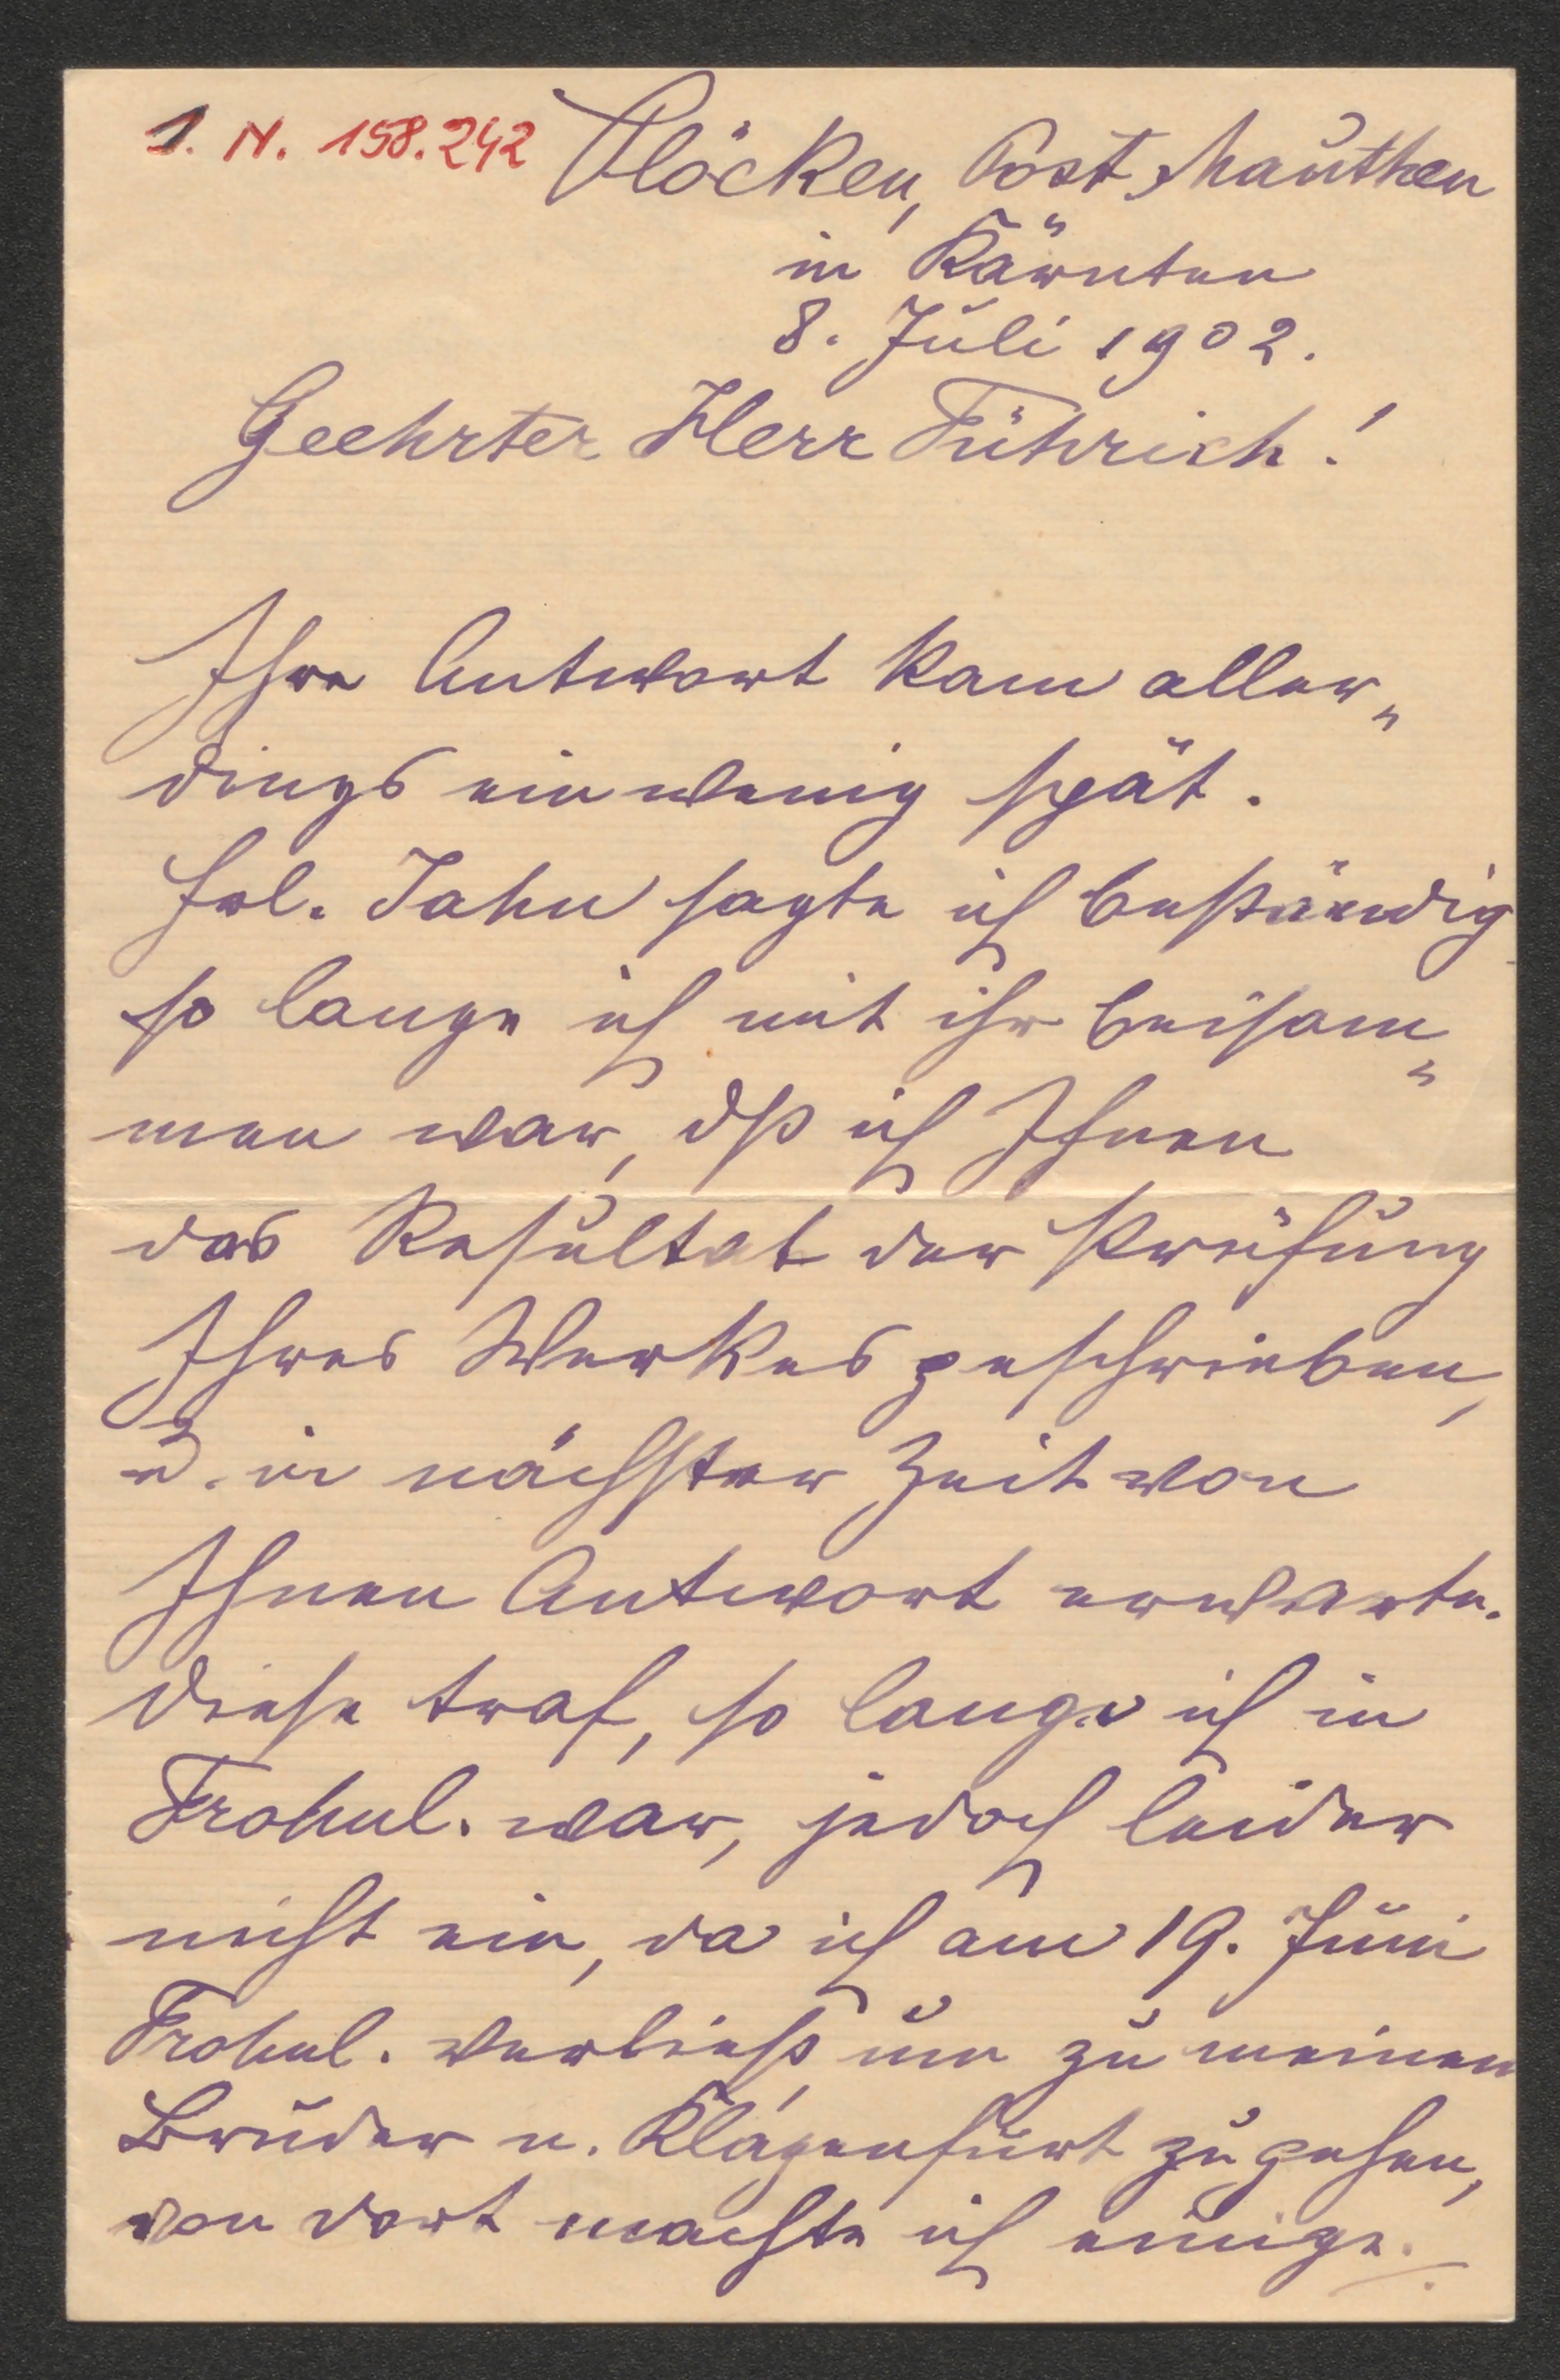 I. N. 158.242
Plöcken, Post Mauthen
in Kärnten
8. Juli 1902.
Geehrter Herr Führich!
Ihre Antwort kam aller„
dings ein wenig spät.
Frl. Jahn sagte ich beständig
so lange ich mit ihr beisam„
men war, dß ich Ihnen
das Resultat der Prüfung
Ihres Werkes geschrieben,
u. in nächster Zeit von
Ihnen Antwort erwarte.
Diese traf, so lange ich in
Frohnl. war, jedoch leider
nicht ein, da ich am 19. Juni
Frohnl. verließ, um zu meinem
Bruder n. Klagenfurt zu gehen,
von dort machte ich einige